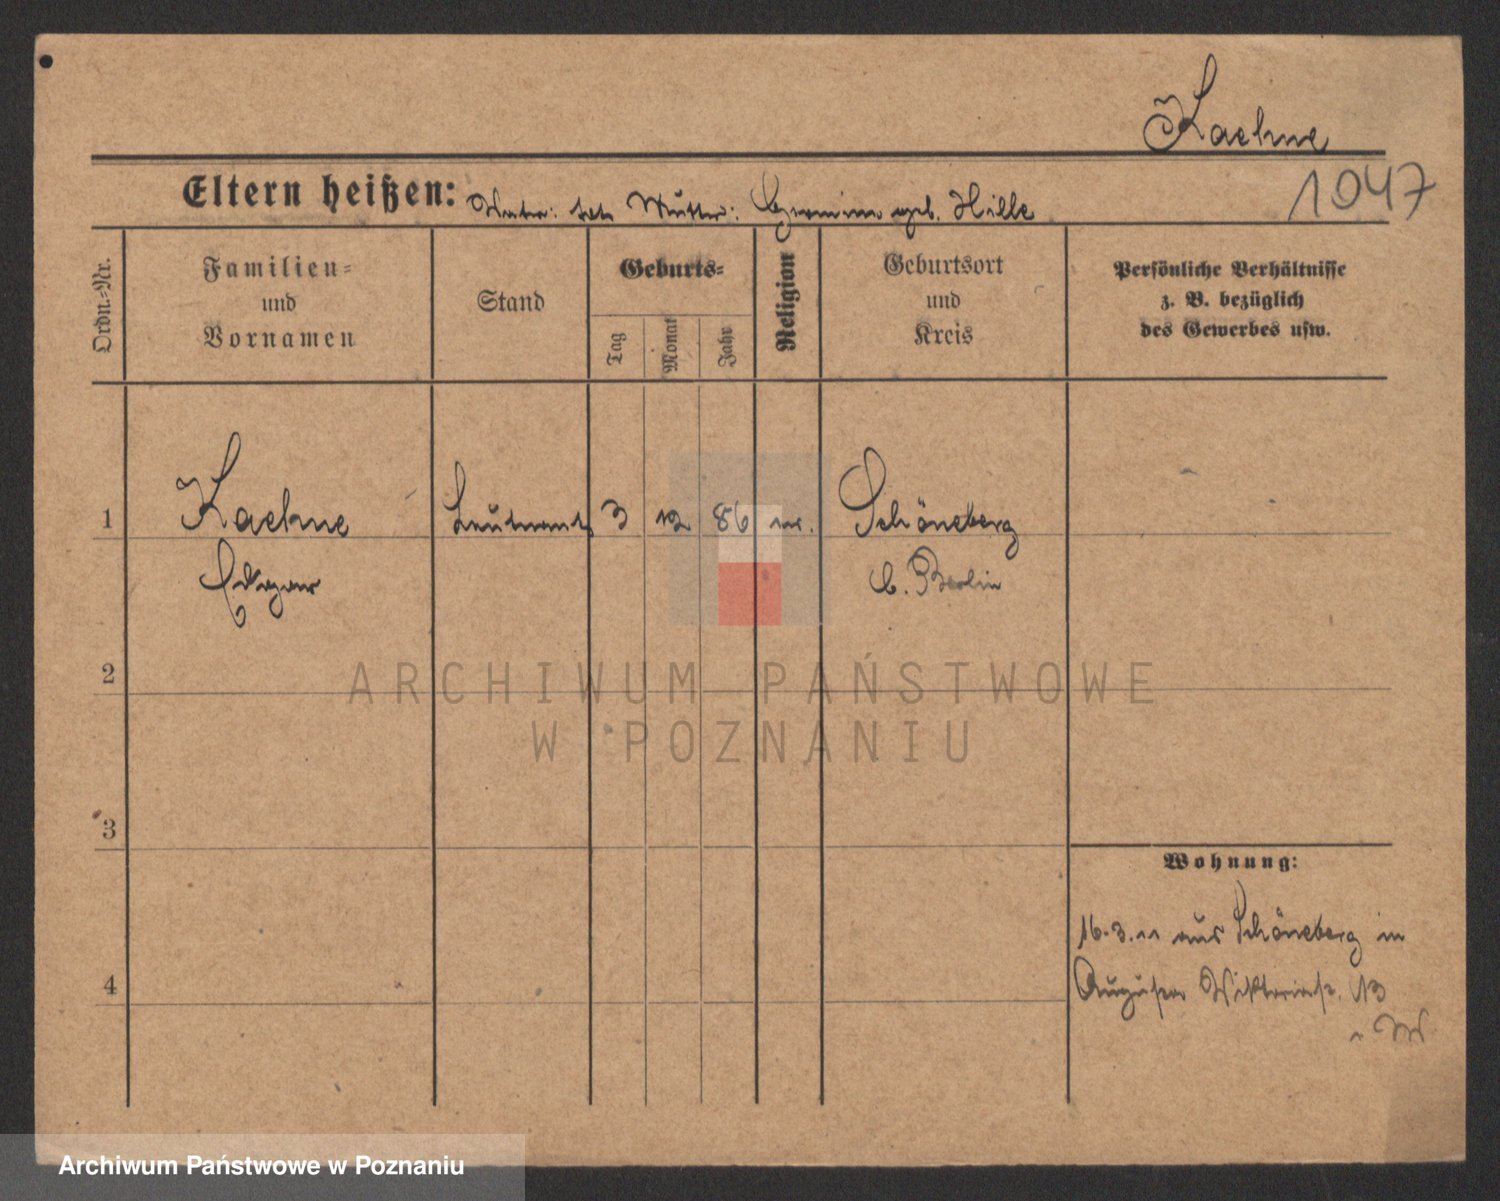 Kaehne
1047
Eltern heißen: Vater: tot Mutter: geb. Hille
Ordn.-Nr.
Familien-
und
Vornamen
Stand
Geburts-
Tag
Monat
Jahr
Religion
Geburtsort
und
Kreis
Persönliche Verhältnisse
z. B. bezüglich
des Gewerbes usw.
1 Kaehne Leutnant 3 12 86 Schöneberg
Edgar b. Berlin
2
3
4
Wohnung:
16.3.11 aus Schöneberg in
Augusta Viktoriastr. 13
ARCHIWUM PAŃSTWOWE
W POZNANIU
Archiwum Państwowe w Poznaniu